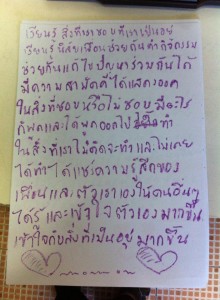 เรียนรู้ สิ่งที่เราชอบที่เราเป็นอยู่
เรียนรู้นิสัยเพื่อน ช่วยกันทำกิจกรรม
ช่วยกันแก้ไขปัญหาร่วมกันได้
มีความสามัคคี ได้แสดงออก
ในสิ่งที่ชอบหรือไม่ชอบ มีอะไร
ก็พูดและได้พูดออกไป ทำ
ในสิ่งที่เราไม่คิดจะทำและไม่เคย
ได้ทำ ได้แชร์ความรู้สึกของ
เพื่อนและตัวเราเองให้คนอื่นๆ
ได้รู้ และเข้าใจตัวเองมากขึ้น
เข้าใจกับสิ่งที่เป็นอยู่มากขึ้น